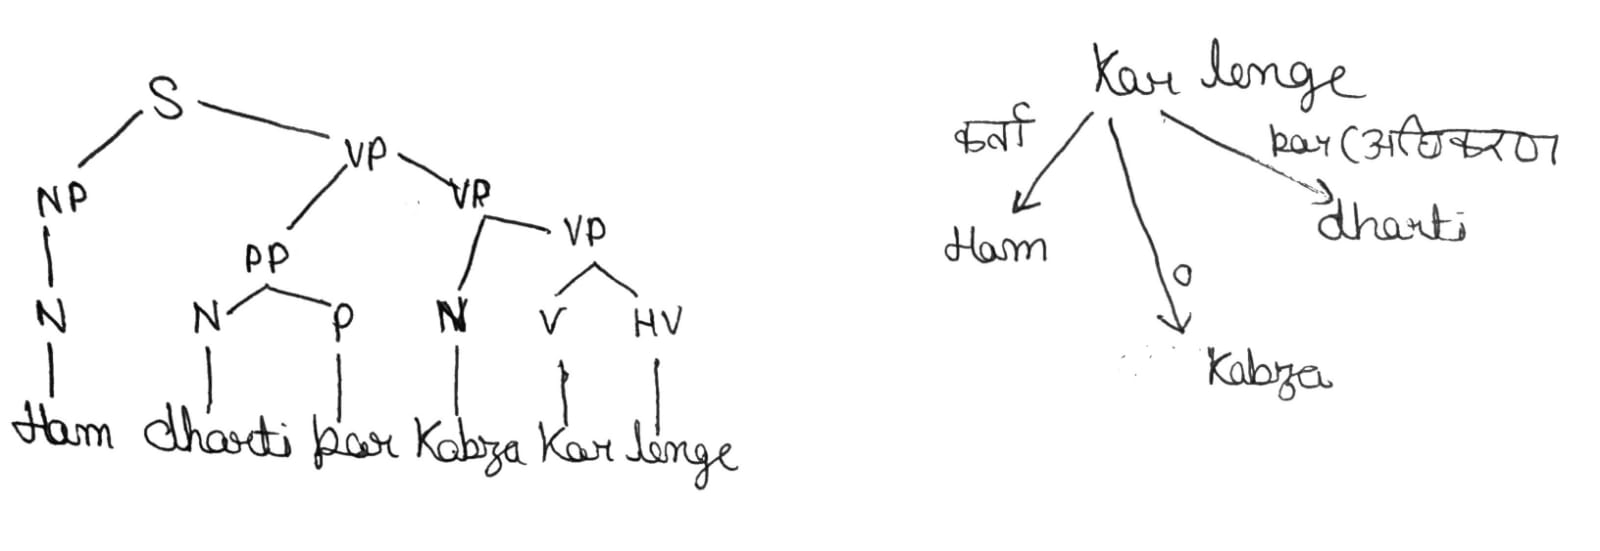 S
VP
NP
VP
VP
PP
N
N
P
N
V
HV
Ham dharti par Kabza Kar lenge
Kar lenge
कर्ता
par (अधिकरण
Ham
dharti
o
Kabza